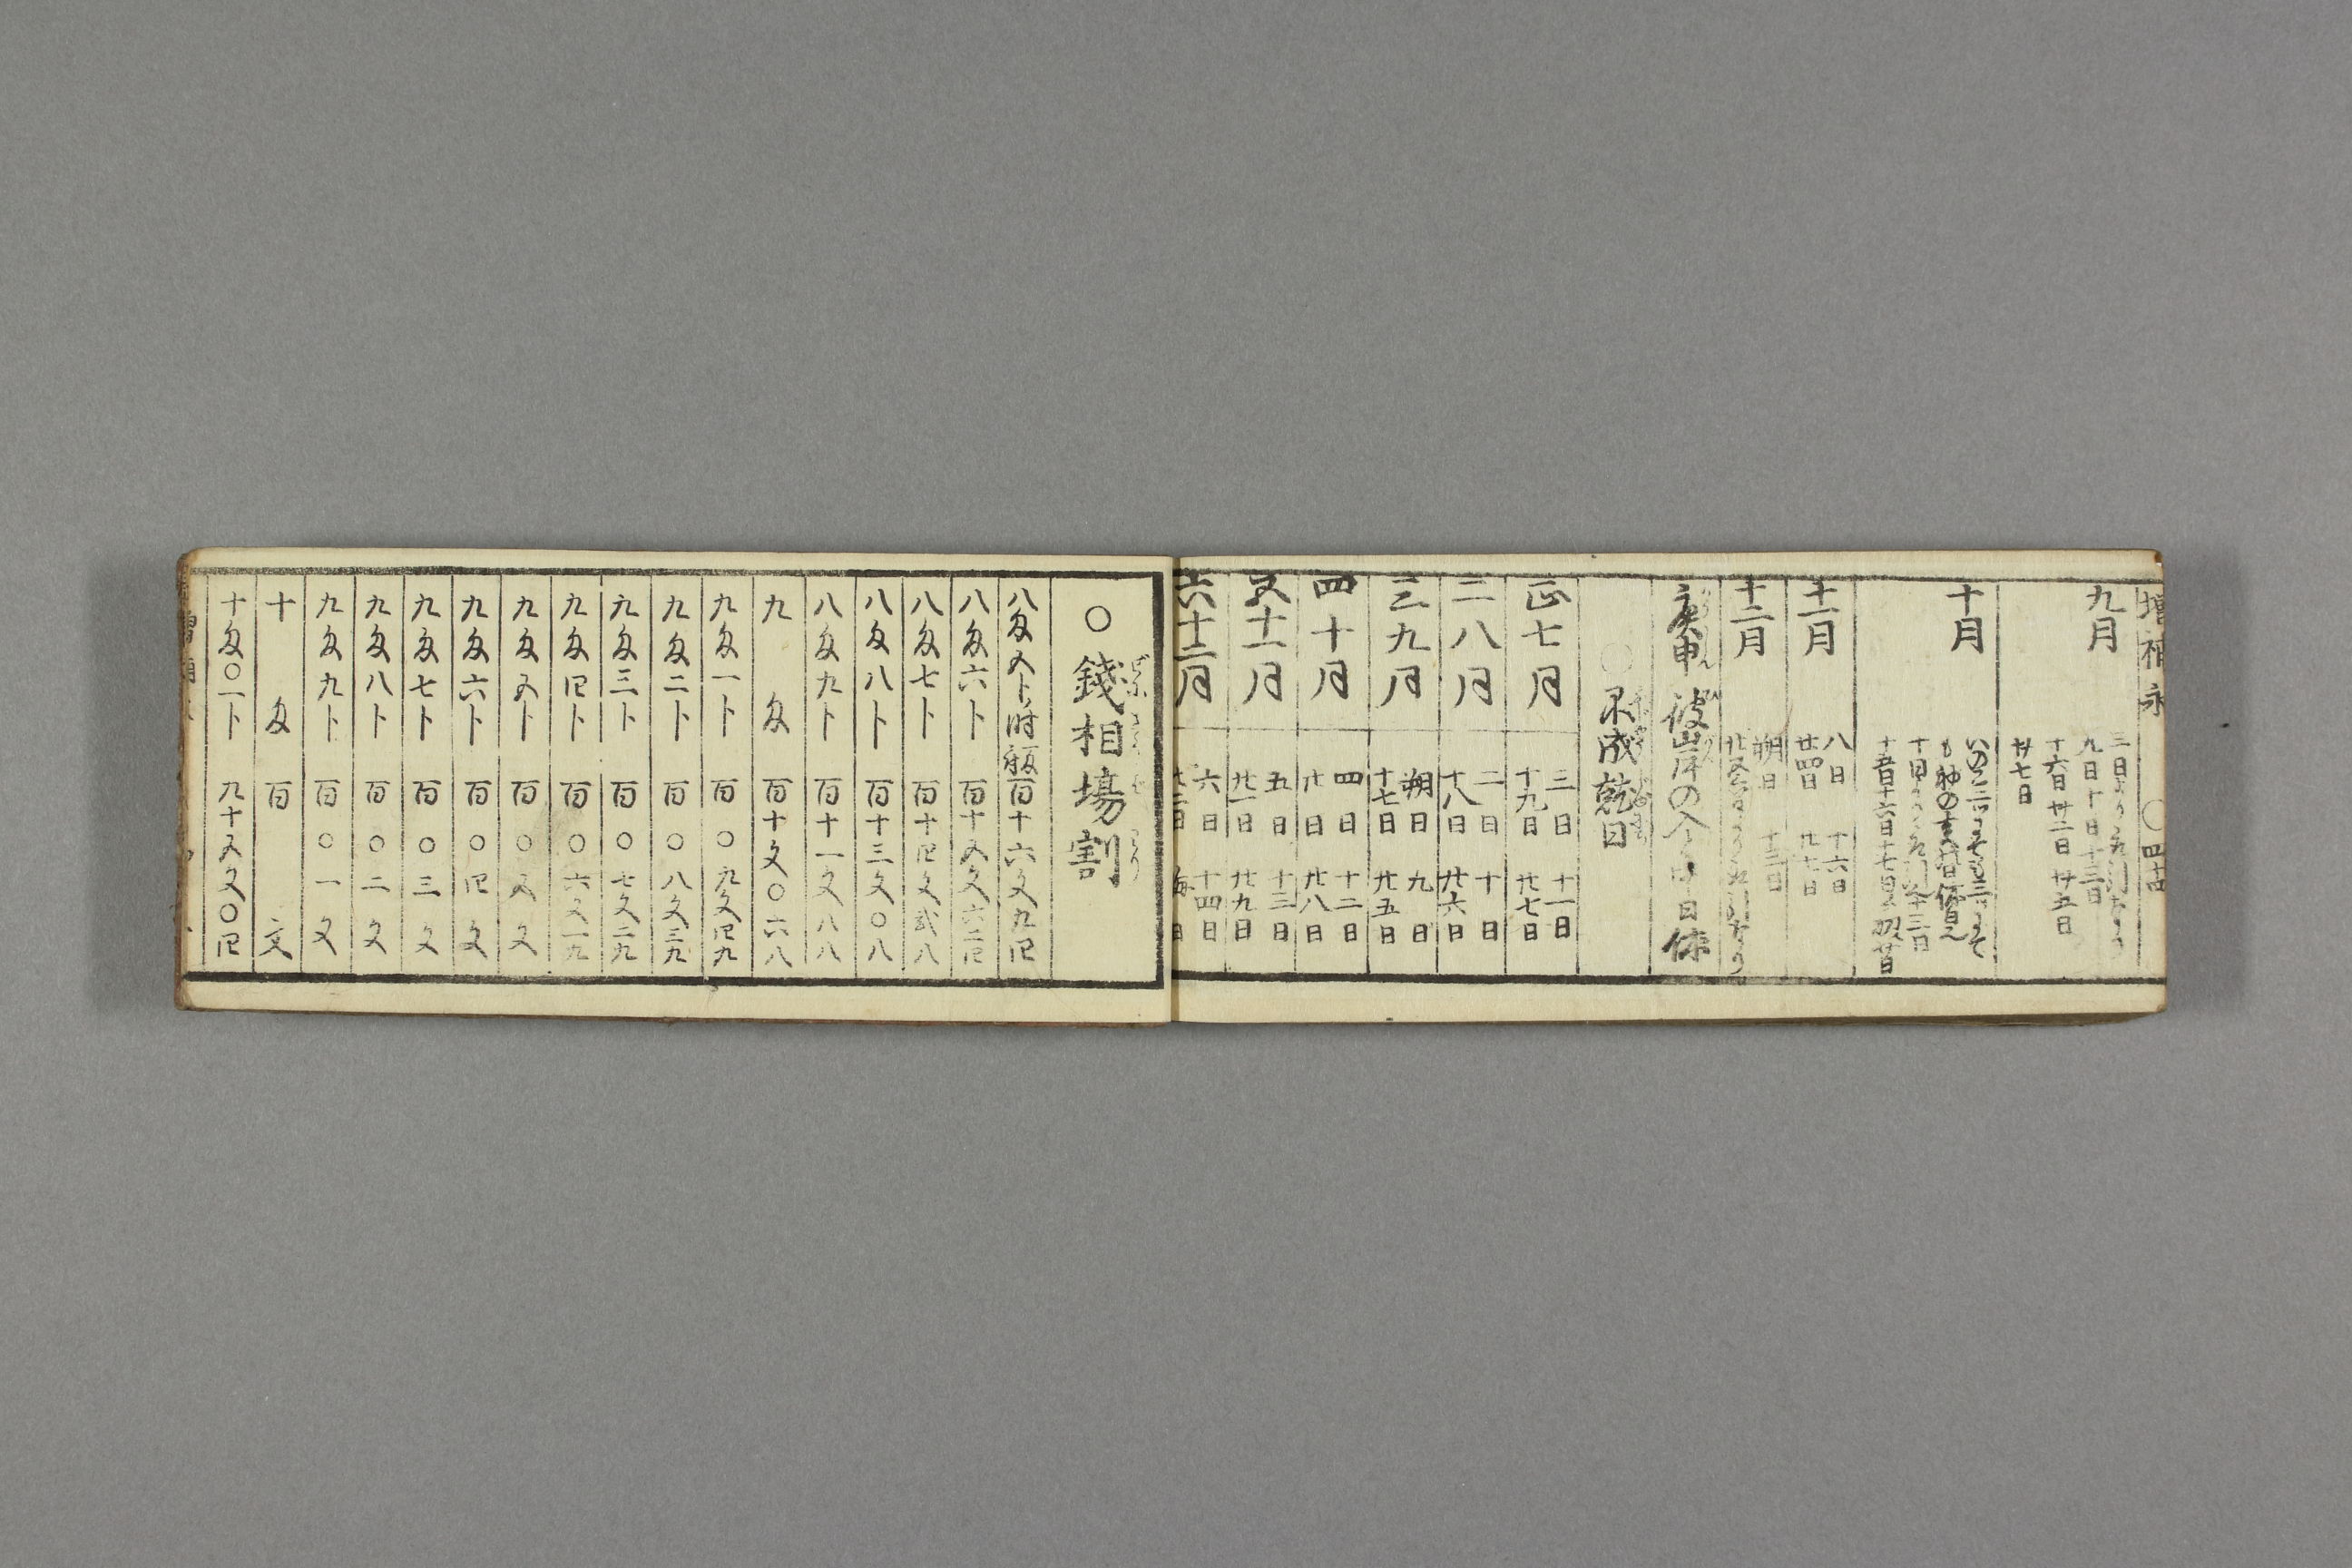 増補永 〇四十五
九月
三日より
九日 十日 十三日
十六日 廿二日 廿五日
廿七日
十月
十五日十六日十七日
十一月
八日 十六日
廿四日 廿七日
十二月
朔日 十三日
庚申 彼岸の入 中日休
〇不成就日
正七月
三日 十一日
十九日 廿七日
二八月
二日 十日
十八日 廿六日
三九月
朔日 九日
十七日 廿五日
四十月
四日 十二日
廿日 廿八日
五十一月
五日 十三日
廿一日 廿九日
六十二月
六日 十四日
廿二日 晦日
〇錢相場割
八匁五卜時ハ 百十六文九四
八匁六卜 百十五文六二四
八匁七卜 百十四文弐八
八匁八卜 百十三文〇八
八匁九卜 百十一文八八
九匁 百十文〇六八
九匁一卜 百〇九文四九
九匁二卜 百〇八文三九
九匁三卜 百〇七文二九
九匁四卜 百〇六文一九
九匁五卜 百〇五文
九匁六卜 百〇四文
九匁七卜 百〇三文
九匁八卜 百〇二文
九匁九卜 百〇一文
十匁 百文
十匁〇一卜 九十五文〇四